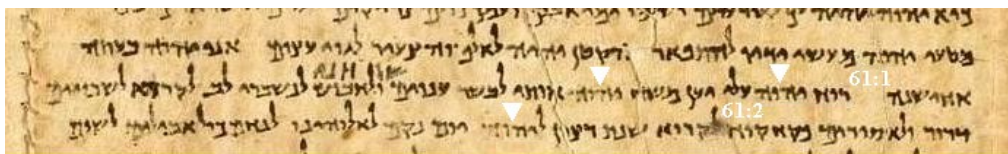 מטעי יהוה מעשי ידיו להתפאר הקטן יהיה לאלף והצעיר לגוי עצום אני יהוה בעתה
61:1
אחישנה רוח יהוה עלי יען משח יהוה אותי לבשר ענוים ולחבוש לנשברי לב לקרוא לשבויים
61:2
דרור ולאסורים פקחקוח לקרוא שנת רצון ליהוה יום נקם לאלוהינו לנחם כול אבלים לשום